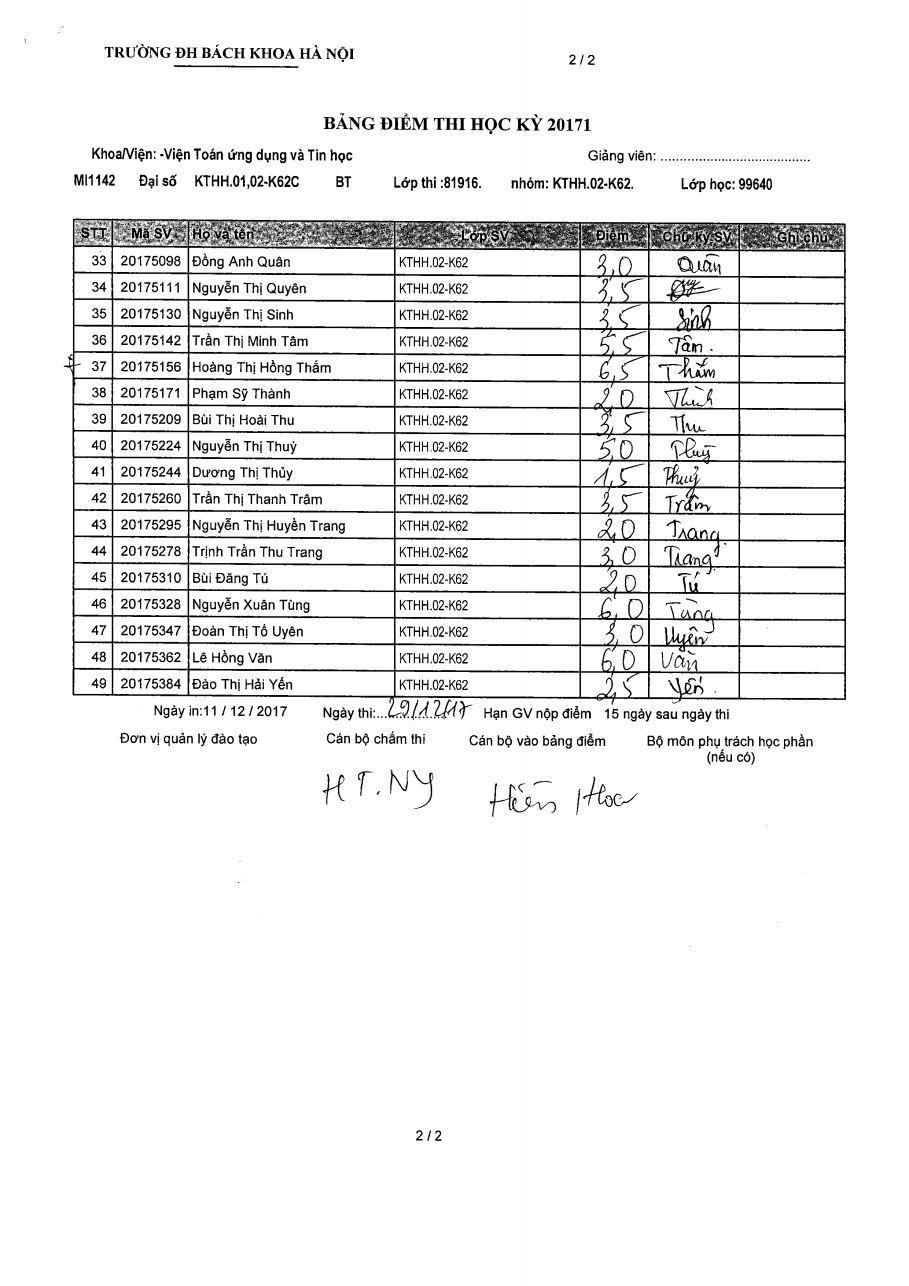 TRƯỜNG ĐH BÁCH KHOA HÀ NỘI 2 / 2
BẢNG ĐIỂM THI HỌC KỲ 20171
Khoa/Viện: -Viện Toán ứng dụng và Tin học Giảng viên: .......................................
MI1142 Đại số KTHH.01,02-K62C BT Lớp thi :81916. nhóm: KTHH.02-K62. Lớp học: 99640
STT Mã SV Họ và tên Lớp SV Điểm Chữ ký SV Ghi chú
33 20175098 Đồng Anh Quân KTHH.02-K62 3,0 Quân
34 20175111 Nguyễn Thị Quyên KTHH.02-K62 3,5
35 20175130 Nguyễn Thị Sinh KTHH.02-K62 3,5 Sinh
36 20175142 Trần Thị Minh Tâm KTHH.02-K62 5,5 Tâm.
37 20175156 Hoàng Thị Hồng Thắm KTHH.02-K62 6,5 Thắm
38 20175171 Phạm Sỹ Thành KTHH.02-K62 2,0
39 20175209 Bùi Thị Hoài Thu KTHH.02-K62 3,5 Thu
40 20175224 Nguyễn Thị Thuỳ KTHH.02-K62 5,0 Thuỳ
41 20175244 Dương Thị Thủy KTHH.02-K62 1,5 Thuỷ
42 20175260 Trần Thị Thanh Trâm KTHH.02-K62 3,5 Trâm
43 20175295 Nguyễn Thị Huyền Trang KTHH.02-K62 2,0 Trang
44 20175278 Trịnh Trần Thu Trang KTHH.02-K62 3,0 Trang
45 20175310 Bùi Đăng Tú KTHH.02-K62 2,0 Tú
46 20175328 Nguyễn Xuân Tùng KTHH.02-K62 6,0 Tùng
47 20175347 Đoàn Thị Tố Uyên KTHH.02-K62 3,0 Uyên
48 20175362 Lê Hồng Văn KTHH.02-K62 6,0 Văn
49 20175384 Đào Thị Hải Yến KTHH.02-K62 2,5 Yến.
Ngày in:11 / 12 / 2017 Ngày thi:...29/12/17 Hạn GV nộp điểm 15 ngày sau ngày thi
Đơn vị quản lý đào tạo Cán bộ chấm thi Cán bộ vào bảng điểm Bộ môn phụ trách học phần
(nếu có)
HT.NY Hiền Hoa
2 / 2